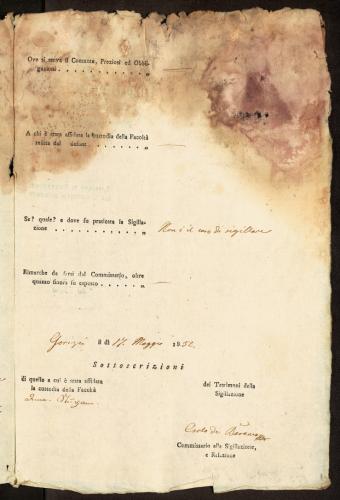 Ove si trova il Contante, Preziosi ed Obbli-
gazioni . . . . . . . . . . . . „
A chi è stata affidata la custodia della Facoltà
relitta dal defunto . . . . . . . . „
Se? quale? e dove fu praticata la Sigilla-
zione . . . . . . . . . . „ Non è il caso di sigillare
Rimarche da farsi dal Commissario, oltre
quanto finora fu esposto . . . . . „
Gorizia li dì 17. Maggio 1852.
Sottoscrizioni
di quello a cui è stata affidata
la custodia della Facoltà
dei Testimonj della
Sigillazione
Carlo de
Commissario alla Sigillazione,
e Relazione